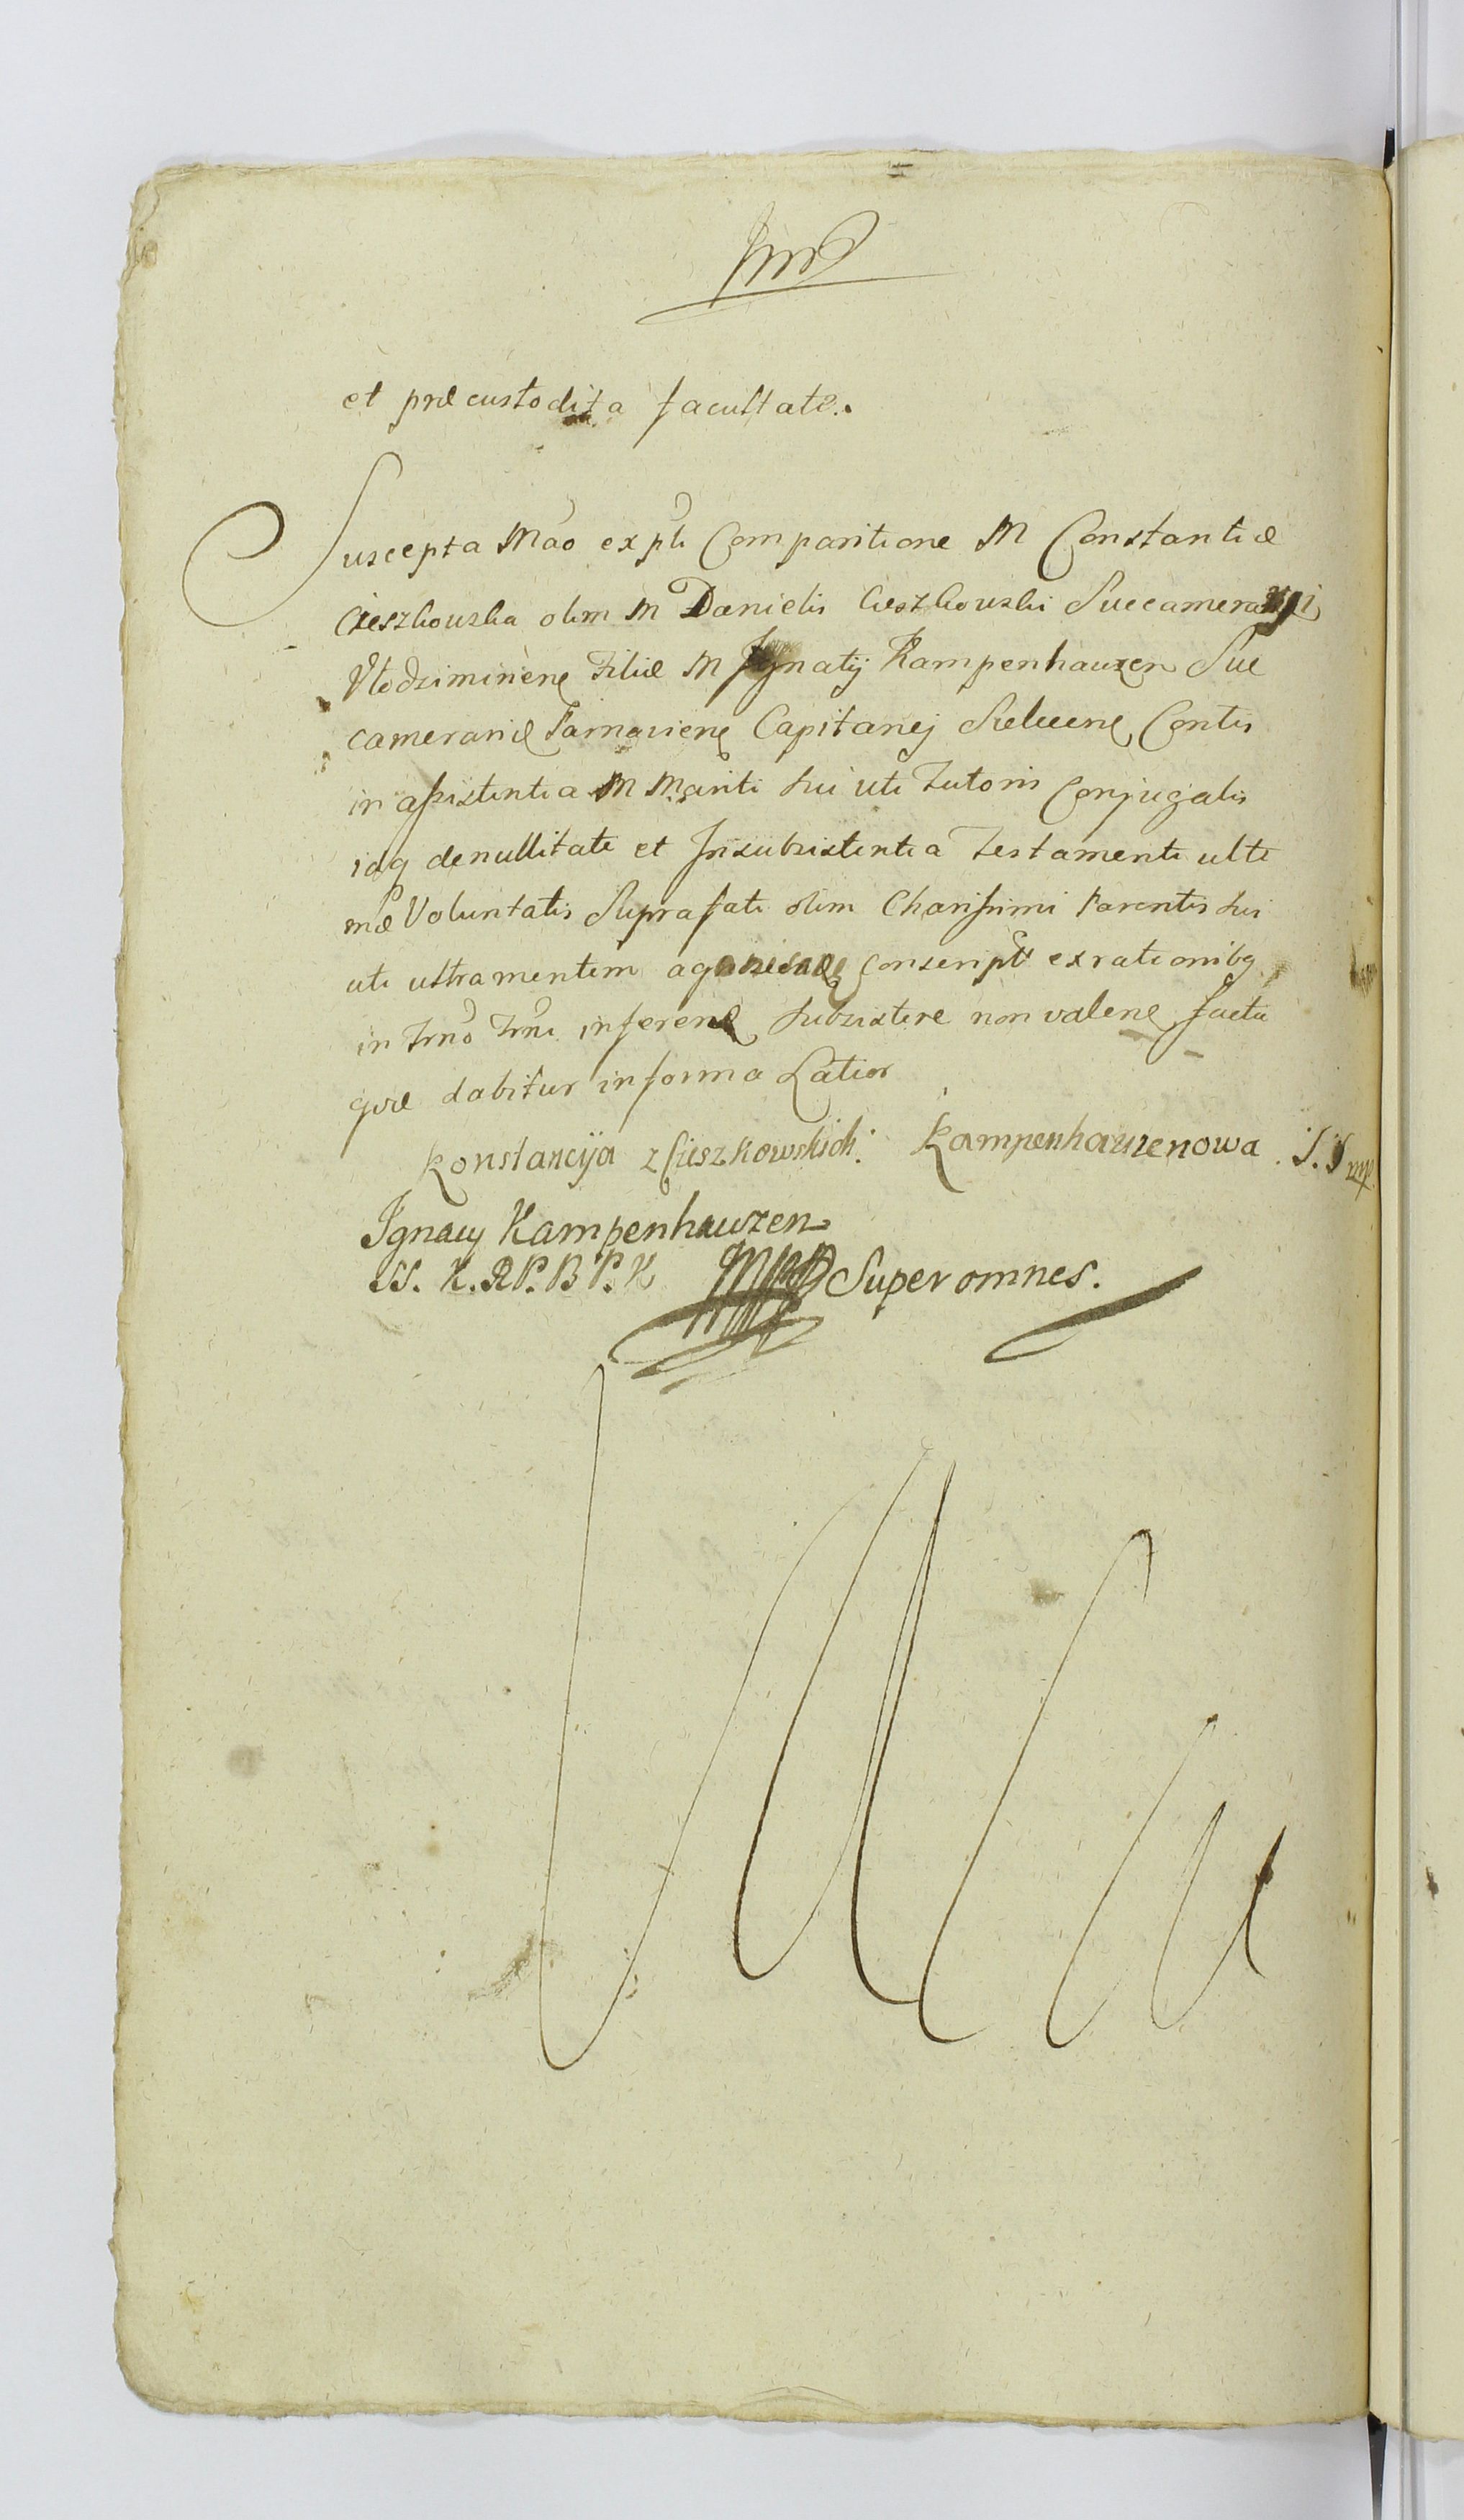 et præcustodita facultate.
Suscepta Mão ex pti Comparitione M Constantiæ
Cieszkouska olim M Danielis Cieszkouski Succamerarii
Vlodzimiriens Filiæ M Ignatij Kampenhauzen Suc
camerariæ Parnaviens Capitanei Contis
in assistentia M Mariti sui uti Tutoris Conjugalis
idq denullitate et Insubsistentia Testamenti ulti
mæ Voluntatis Suprafati olim Charissimi Parentis sui
uti ultramentem conscripti exrationibq
in Trno Trni inferens subsistere non valens facta
quæ dabitur informa Latior
Konstancyja z Cieszkowskich Kampenhauzenowa
Ignacy Kampenhauzen
Super omnes.